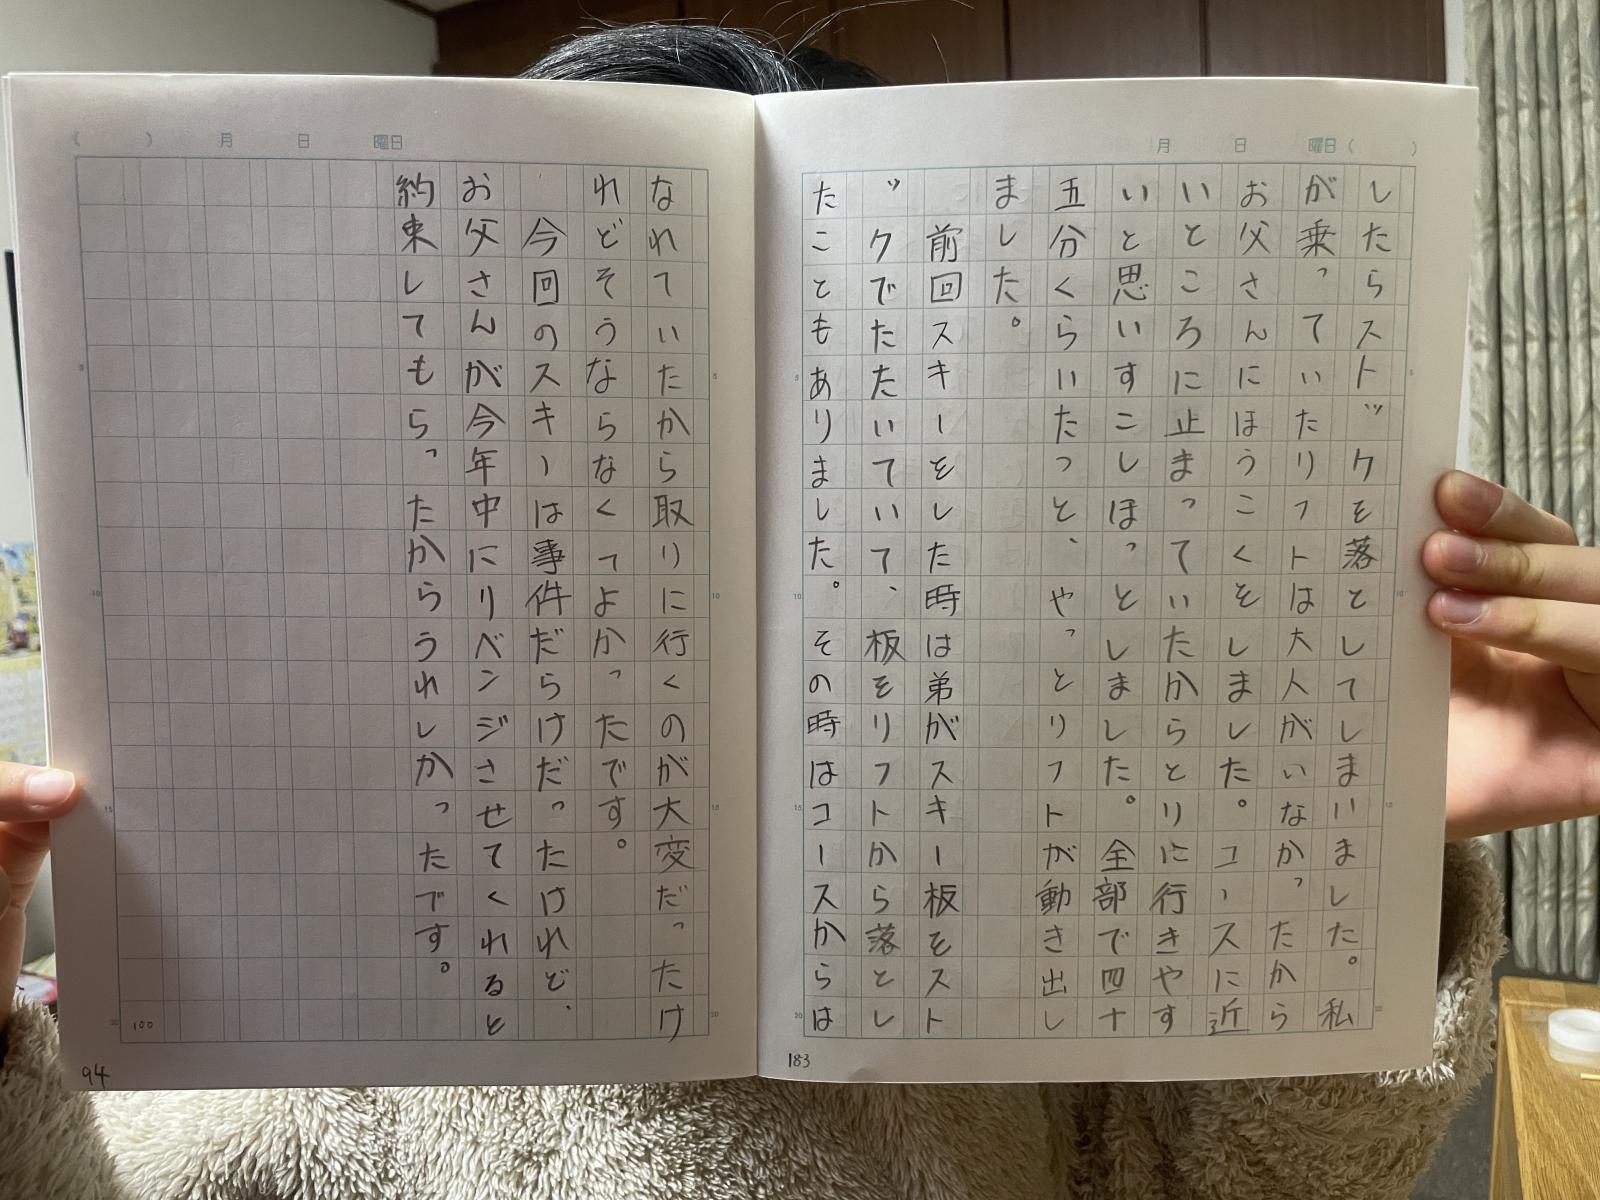 月 日 曜日( )
したらストックを落としてしまいました。私
が乗っていたリフトは大人がいなかったから
お父さんにほうこくをしました。コースに近
いところに止まっていたからとりに行きやす
いと思いすこしほっとしました。全部で四十
五分くらいたつと、やっとリフトが動き出し
ました。
前回スキーをした時は弟がスキー板をスト
ックでたたいていて、板をリフトから落とし
たこともありました。その時はコースからは
5
10
15
20
5
10
15
20
183
( ) 月 日 曜日
なれていたから取りに行くのが大変だったけ
れどそうならなくてよかったです。
今回のスキーは事件だらけだったけれど、
お父さんが今年中にリベンジさせてくれると
約束してもらったからうれしかったです。
5
10
15
20
5
10
15
20
100
94